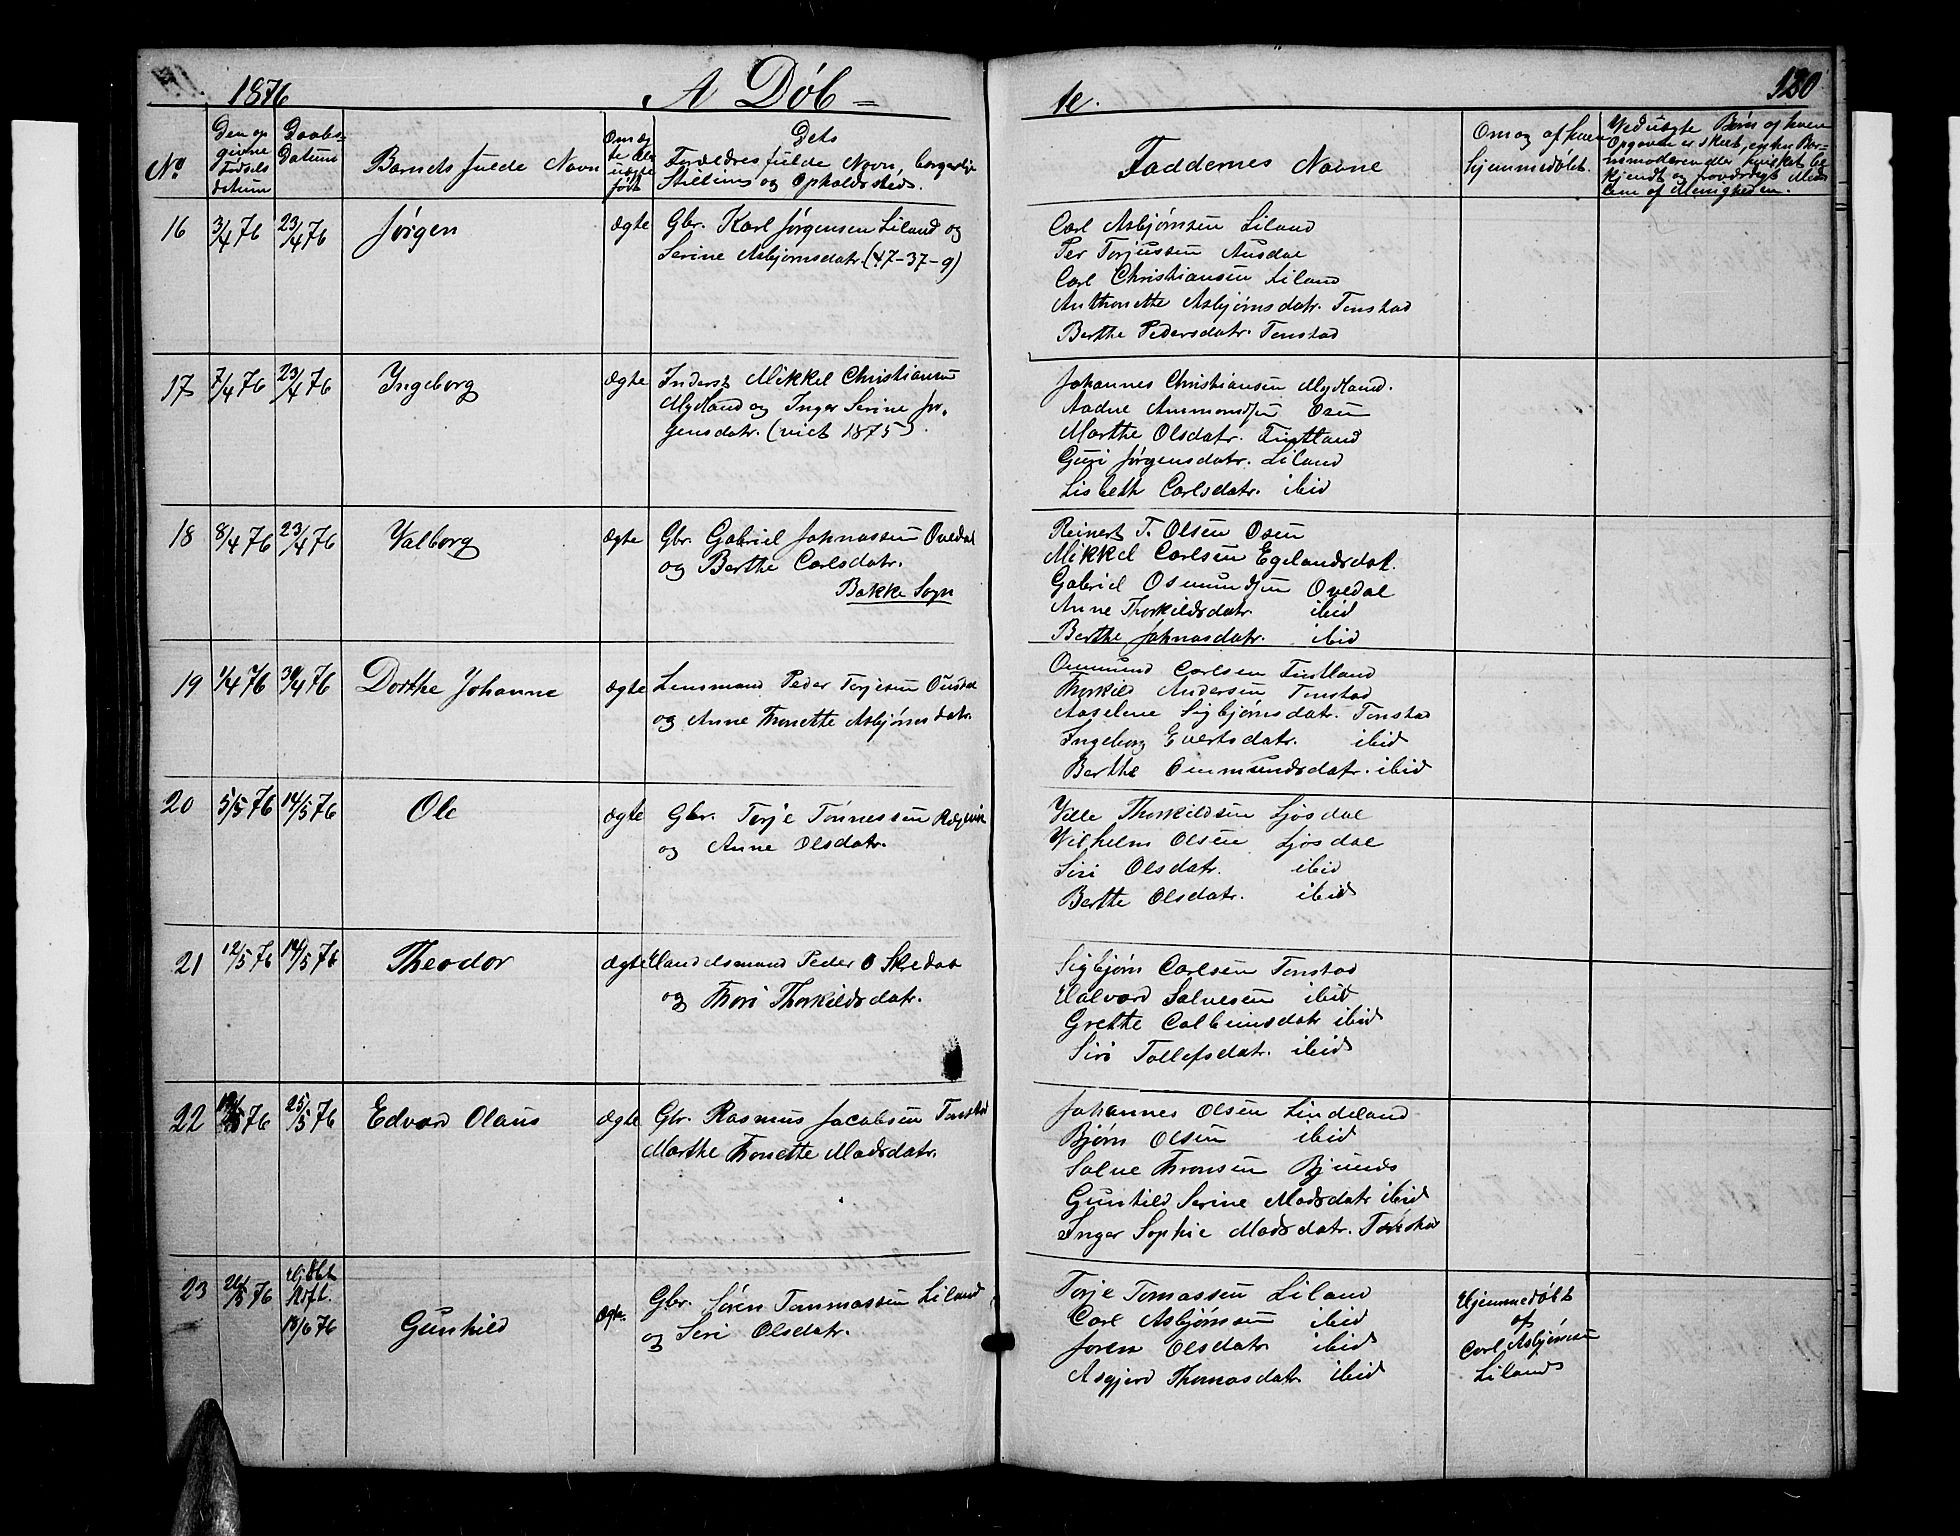 1876 A Döb= te. 120
No
Den opgivne Födselsdatum
Daabs-Datum
Barnets fulde Navn
Om ægte eller uægte født
Dets Forældres fulde Navn, borgerlige Stilling og Opholdssteds.
Faddernes Navne
Om og af hvem hjemmedöbt.
Ved uægte Börn af hvem Opgaven er skeet, enten Barnsmoderen eller hvilket bekjendt og troværdigt Medlem af Menigheden.
16 3/4 76 23/4 76 Jørgen ægte Gbr. Karl Jørgensen Liland og
Serine Asbjørnsdatr. (47-37-9)
Carl Asbjørnsen Liland
Per Torjussen Ausdal
Carl Christiansen Liland
Anthonette Asbjørnsdatr. Tonstad
Berthe Pedersdatr. Tonstad
17 7/4 76 23/4 76 Ingeborg ægte Inderst Mikkel Christiansen
Mydland og Inger Serine Jør-
gensdatr. (viet 1875).
Johannes Christiansen Mydland.
Aadne Ammondsen Osen
Marthe Olsdatr. Fintland
Guri Jørgensdatr. Liland
Lisbeth Carlsdatr. ibid
18 8/4 76 23/4 76 Valborg ægte Gbr. Gabriel Johnassen Ovedal
og Berthe Carlsdatr.
Bakke Sogn
Reinert T. Olsen Osen
Mikkel Carlsen Egelandsdal.
Gabriel Osmundsen Ovedal
Anne Thorkildsdatr. ibid
Berthe Johnasdatr. ibid
19 1/4 76 30/4 76 Dorthe Johanne ægte Lensmand Peder Torjesen Ousdal
og Anne Thonette Asbjørnsdatr.
Ommund Carlsen Fintland
Thorkild Andersen Tonstad
Aaselene Sigbjørnsdatr. Tonstad
Ingeborg Evertsdatr. ibid
Berthe Ommundsdatr. ibid
20 5/5 76 14/5 76 Ole ægte Gbr. Torje Tönnessen Rægevik
og Anne Olsdatr.
Ville Thorkildsen Sjøsdal
Vilhelm Olsen Sjøsdal
Siri Olsdatr. ibid
Berthe Olsdatr. ibid
21 12/5 76 14/5 76 Theodor ægte Handelsmand Peder O Skredaa
og Thori Thorkildsdatr.
Sigbjørn Carlsen Tonstad
Halvord Salvesen ibid
Grethe Colbeinsdatr ibid
Siri Tollefsdatr. ibid
22 /5 76 25/5 76 Edvard Olaus ægte Gbr. Rasmus Jacobsen Tonstad
Marthe Thonette Madsdatr.
Johannes Olsen Lindeland
Bjørn Olsen ibid
Salve Thronsen Bjunes
Gunhild Serine Madsdatr ibid
Inger Sophie Madsdatr. Tonstad
23 26/5 76 Hjdbt. Stdf. 18/6 76 Gunhild ægte Gbr. Sören Tommassen Liland
og Siri Olsdatr.
Torje Tomassen Liland
Carl Asbjørnsen ibid
Joren Olsdatr ibid
Asgjerd Thomasdatr. ibid
Hjemmedöbt
af
Carl Asbjørnsen
Liland